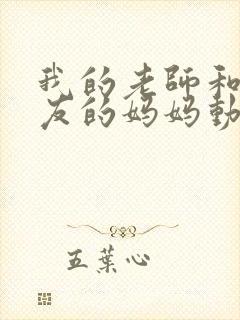 我的老師和
友的妈妈動
五葉心